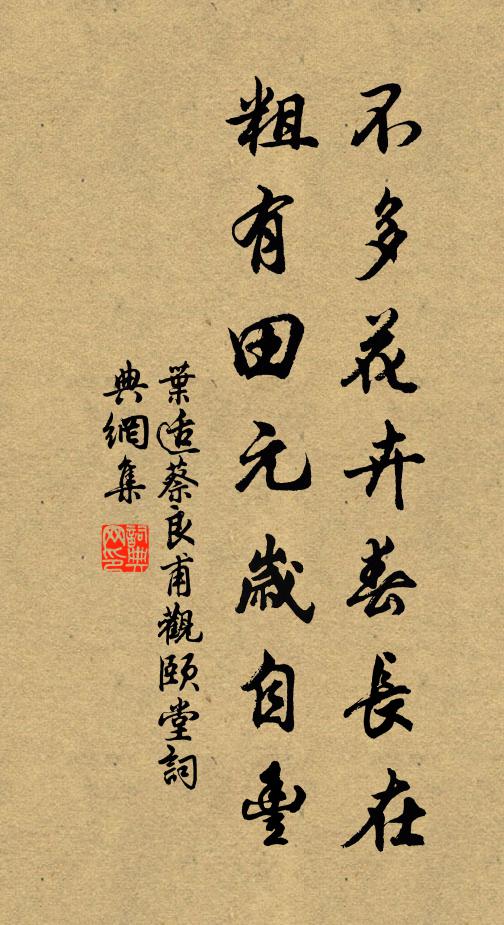 不多花卉春長在
粗有田元歲自豐
葉适蔡良甫觀頤堂詞
典網集
詞典
网印